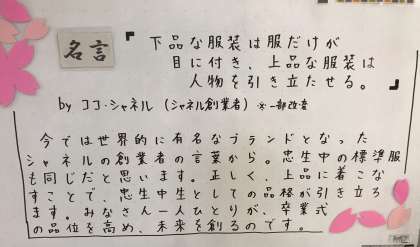 名言
『下品な服装は服だけが
目に付き、上品な服装は
人物を引き立たせる。』
by ココ・シャネル (シャネル創業者) ※一部改変
今では世界的に有名なブランドとなった
シャネルの創業者の言葉から。忠生中の標準服
も同じだと思います。正しく、上品に着こな
すことで、忠生中生としての品格が引き立ち
ます。みなさん一人ひとりが、卒業式
の品位を高め、未来を創るのです。